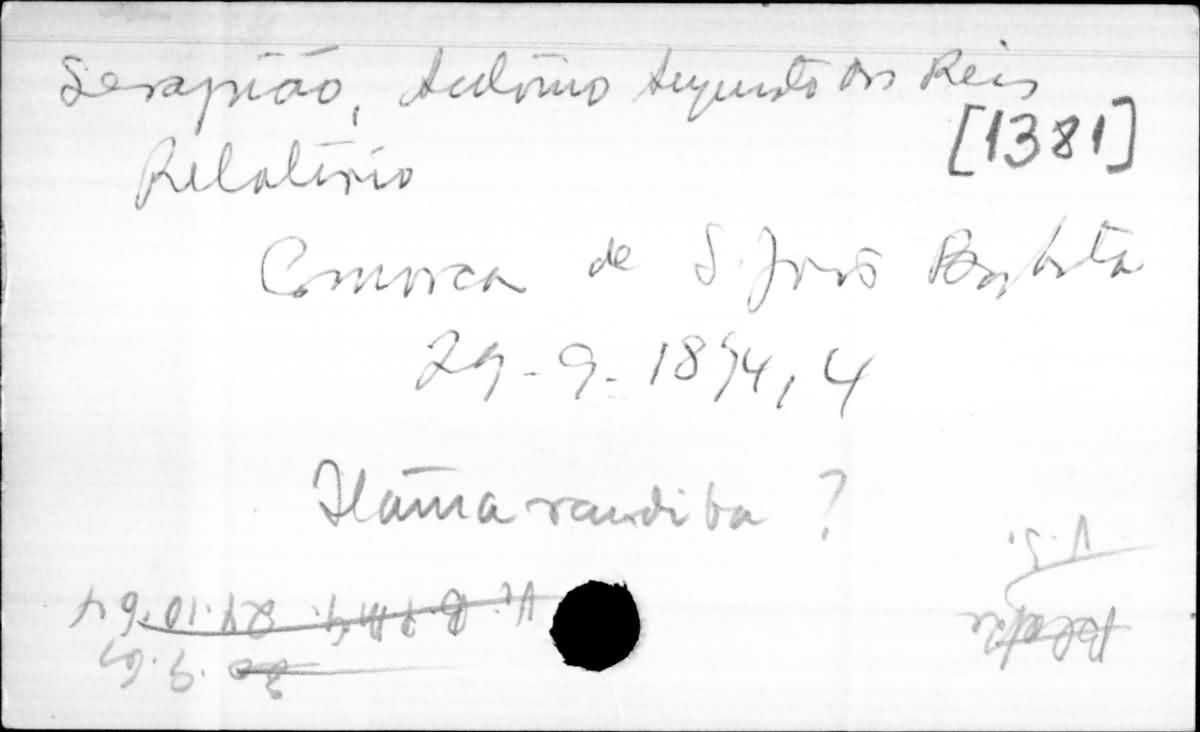 Serapião, António Augusto dos Reis
[1381]
Relatório
Comarca de S. João Baptista
29-9-1894, 4
Itamarandiba ?
V. S.